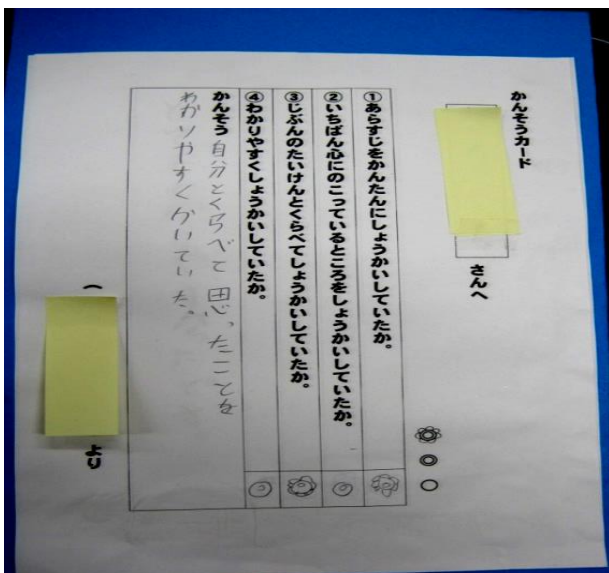 かんそうカード
さんへ
①あらすじをかんたんにしょうかいしていたか。
②いちばん心にのこっているところをしょうかいしていたか。
③じぶんのたいけんとくらべてしょうかいしていたか。
④わかりやすくしょうかいしていたか。
かんそう 自分とくらべて思ったことを
わかりやすくかいていた。
(
より